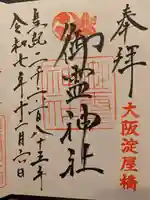 奉拝
大阪淀屋橋
御霊神社
皇紀二千六百八十五年
令和七年十二月六日